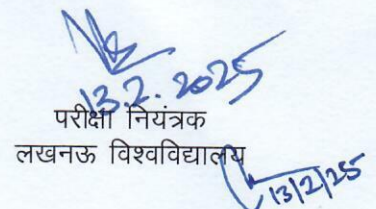 13.2.2025
परीक्षा नियंत्रक
लखनऊ विश्वविद्यालय
13/2/25